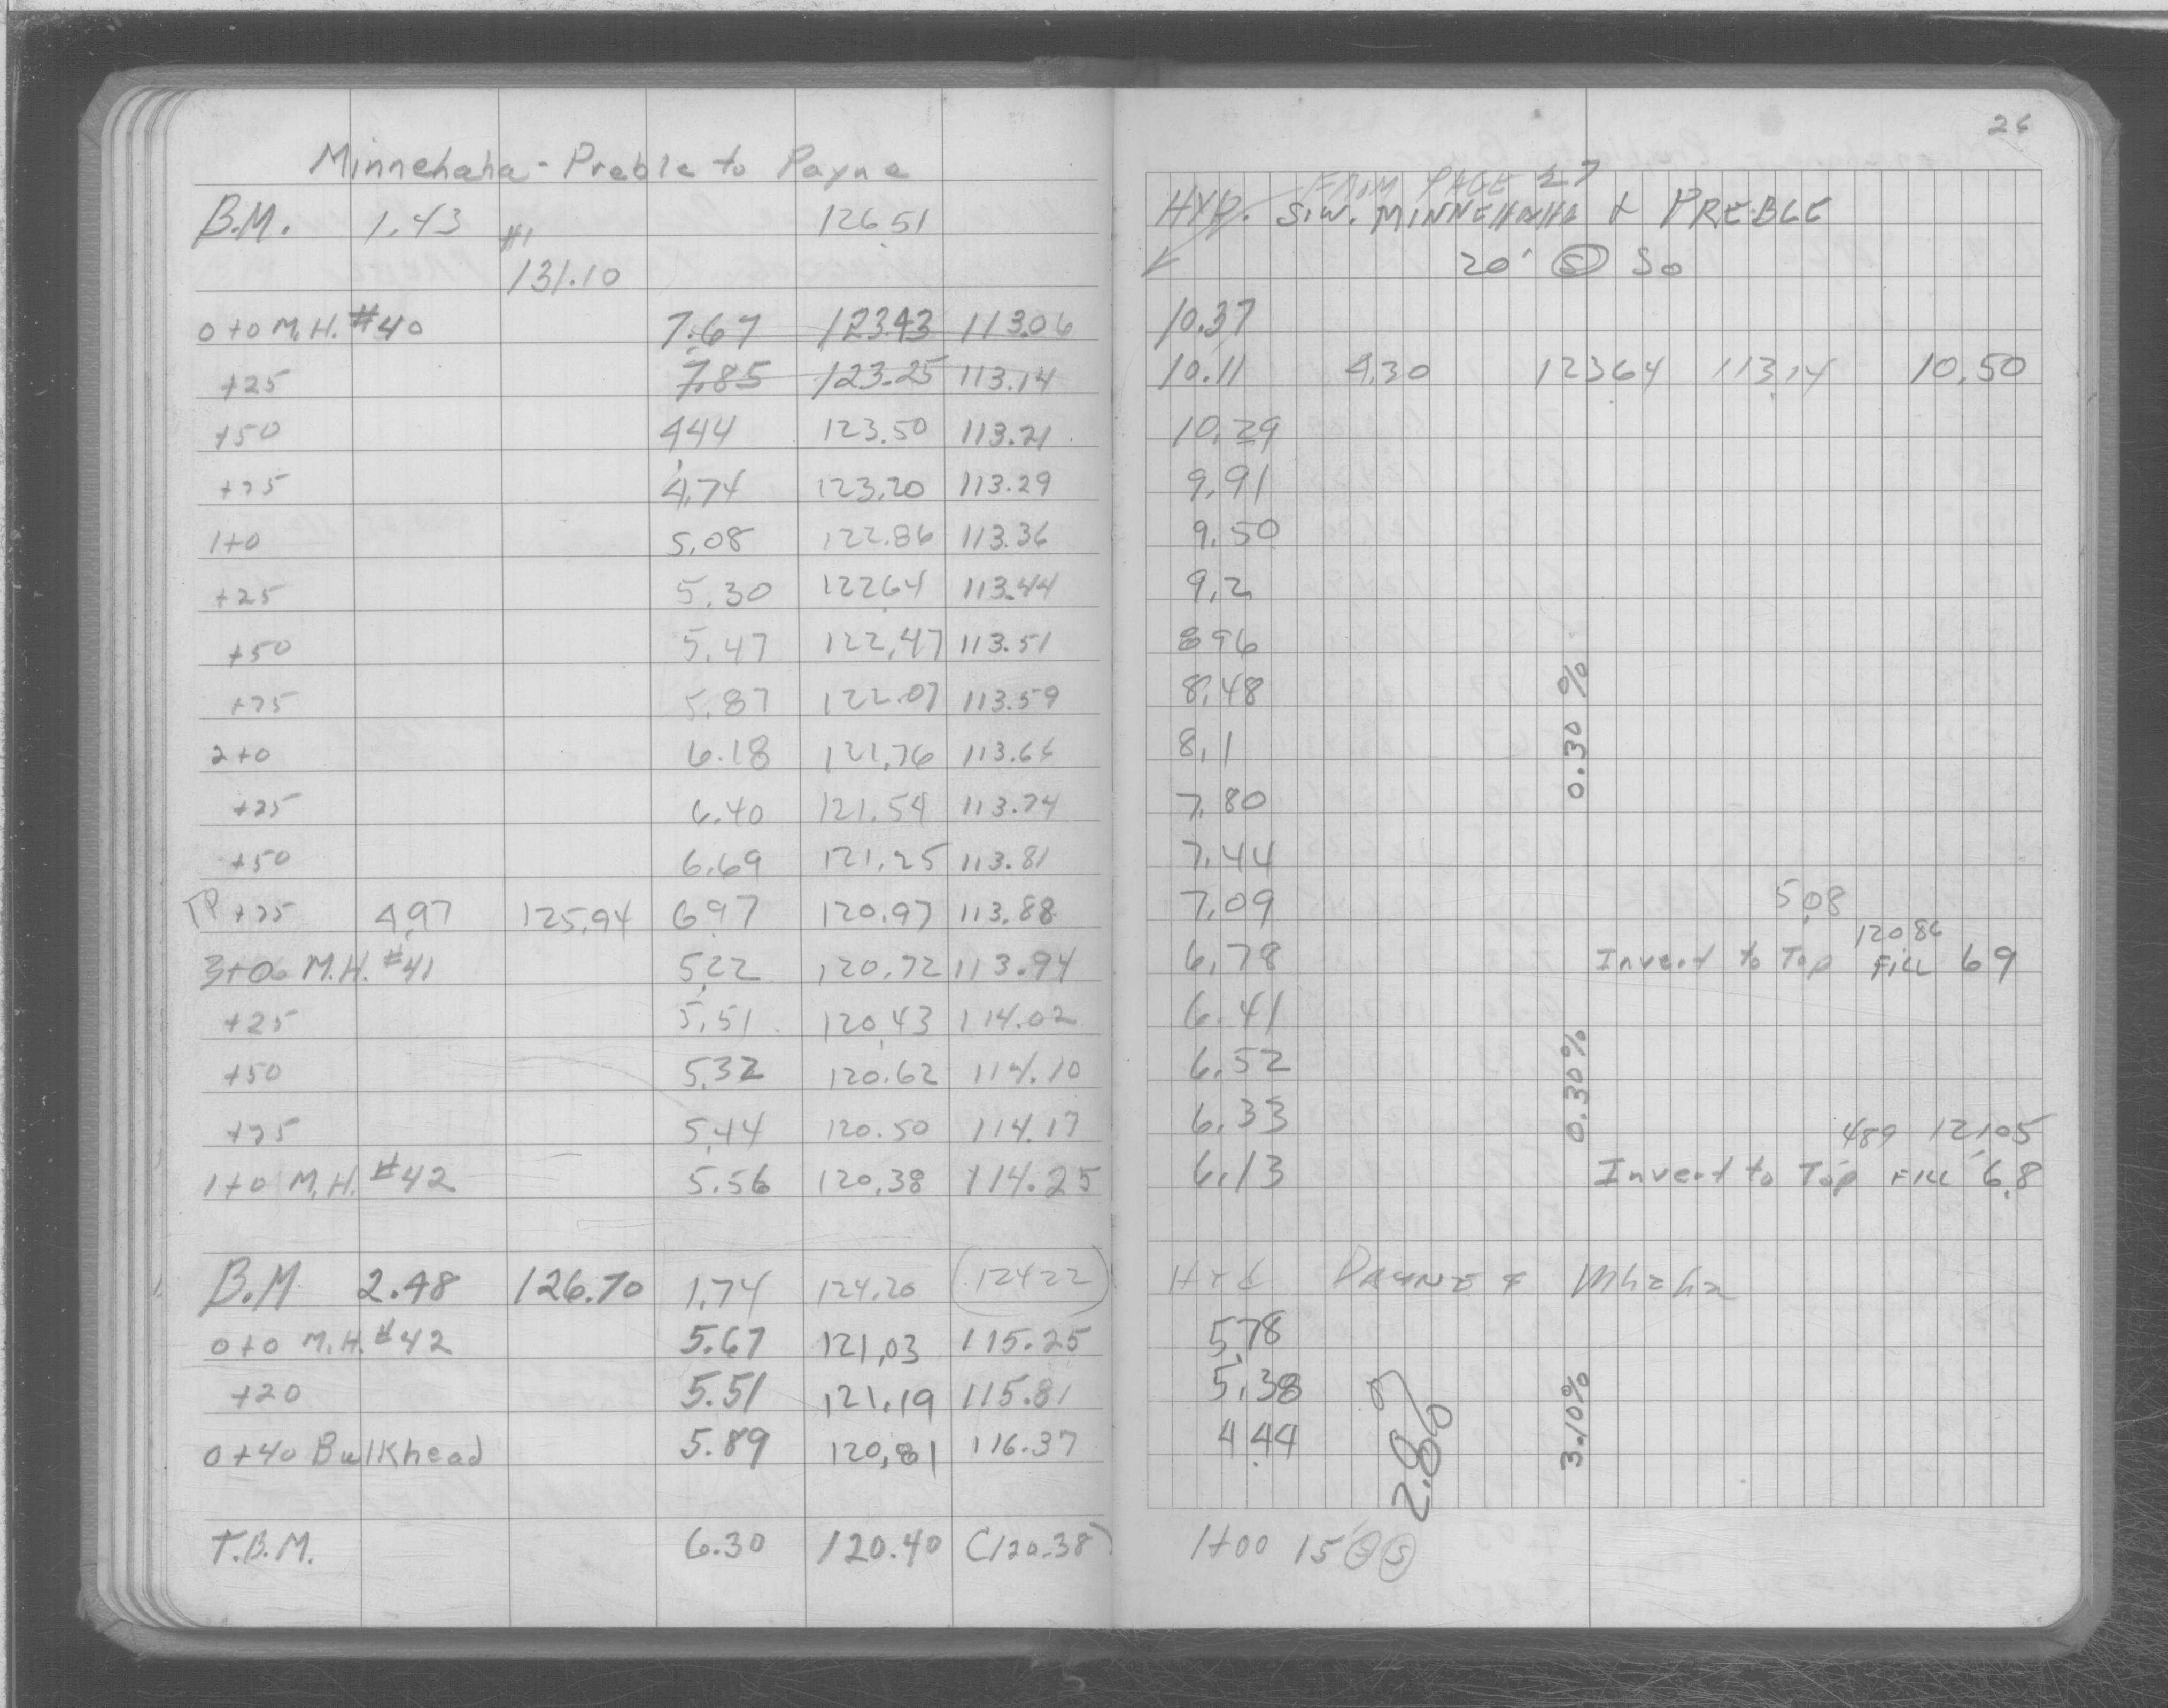 Minnehaha - Preble to Payne
B.M. 1.43 126.51
#1
131.10
0+0 M.H. #40 7.67 123.43 113.06
+25 7.85 123.25 113.14
+50 4.44 123.50 113.21
+75 4.74 123.20 113.29
1+0 5.08 122.86 113.36
+25 5.30 122.64 113.44
+50 5.47 122.47 113.51
+75 5.87 122.07 113.59
2+0 6.18 121.76 113.66
+25 6.40 121.54 113.74
+50 6.69 121.25 113.81
TP +75 4.97 125.94 6.97 120.97 113.88
3+0 M.H. #41 5.22 120.72 113.94
+25 5.51 120.43 114.02
+50 5.32 120.62 114.10
+75 5.44 120.50 114.17
1+0 M.H. #42 5.56 120.38 114.25
B.M 2.48 126.70 1.74 124.20 (124.22)
0+0 M.H. #42 5.67 121.03 115.25
+20 5.51 121.19 115.81
0+40 Bulkhead 5.89 120.81 116.37
T.B.M. 6.30 120.40 (120.38)
26
FROM PAGE 27
HYD. S.W. MINNEHAHA & PREBLE
20' S So
10.37
10.11 4.30 123.64 113.14 10.50
10.29
9.91
9.50
9.2
8.96
8.48
8.1
0.30 %
7.80
7.44
7.09 5.08
120.86
6.78 Invert to Top Fill 6.9
6.41
6.52
0.30%
6.33 4.89 121.05
6.13 Invert to Top Fill 6.8
Hyd PAYNE & Mhaha
5.78
5.38
4.44
2.80
3.10%
1+00 15' S